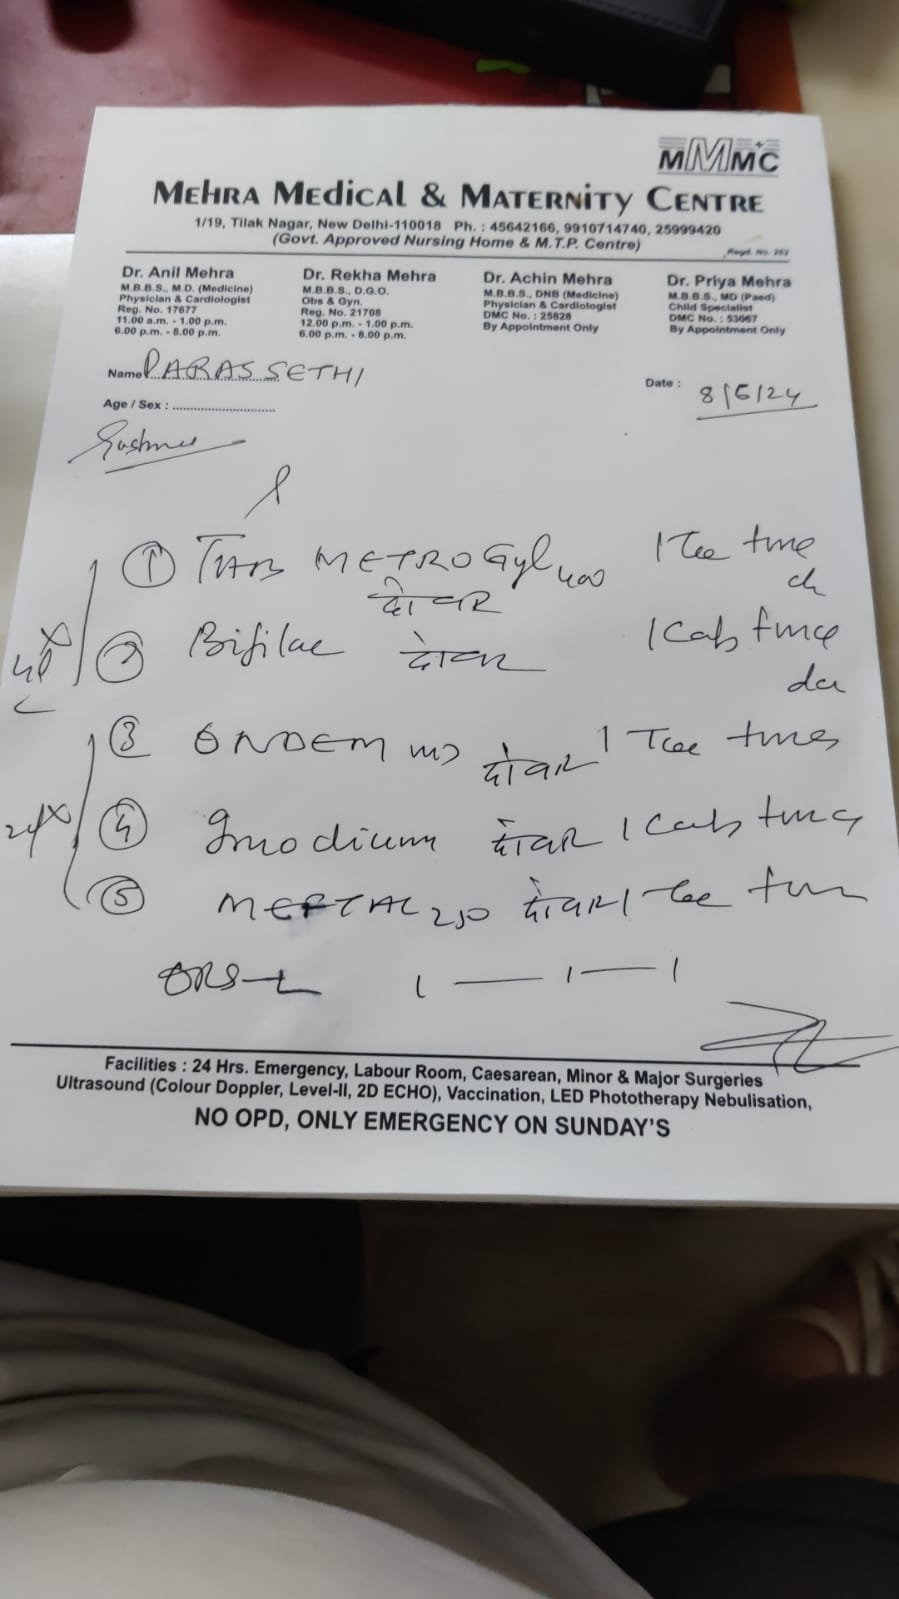 MMMC
MEHRA MEDICAL & MATERNITY CENTRE
1/19, Tilak Nagar, New Delhi-110018 Ph. : 45642166, 9910714740, 25999420
(Govt. Approved Nursing Home & M.T.P. Centre)
Regd. No. 262
Dr. Anil Mehra
M.B.B.S., M.D. (Medicine)
Physician & Cardiologist
Reg. No. 17677
11.00 a.m. - 1.00 p.m.
6.00 p.m. - 8.00 p.m.
Dr. Rekha Mehra
M.B.B.S., D.G.O.
Obs & Gyn.
Reg. No. 21708
12.00 p.m. - 1.00 p.m.
6.00 p.m. - 8.00 p.m.
Dr. Achin Mehra
M.B.B.S., DNB (Medicine)
Physician & Cardiologist
DMC No. : 25828
By Appointment Only
Dr. Priya Mehra
M.B.B.S., MD (Paed)
Child Specialist
DMC No. : 53067
By Appointment Only
Name PARAS SETHI
Date : 8/6/24
Age / Sex :
① TAB METROGYL 400 1
दो बार
② Bifilac दो बार 1 Cab
③ ONDEM MD दो बार 1
④ Imodium दो बार 1 Cab
⑤ MEFTAL 250 दो बार 1
ORS-L 1 — 1 — 1
Facilities : 24 Hrs. Emergency, Labour Room, Caesarean, Minor & Major Surgeries
Ultrasound (Colour Doppler, Level-II, 2D ECHO), Vaccination, LED Phototherapy Nebulisation,
NO OPD, ONLY EMERGENCY ON SUNDAY'S